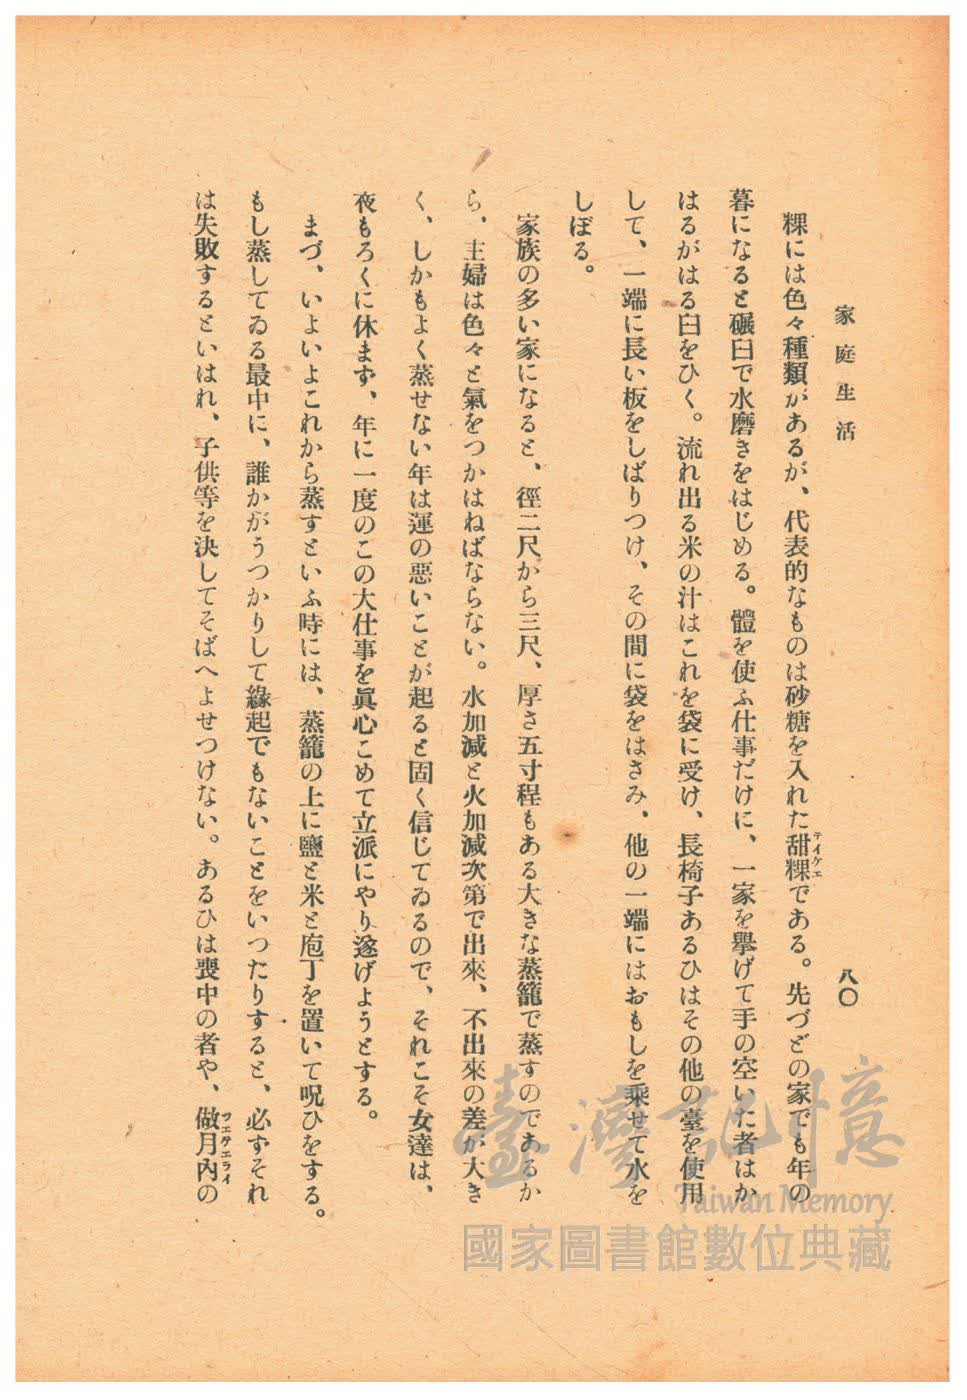 家庭生活
八〇
粿には色々種類があるが、代表的なものは砂糖を入れた甜粿テイケエである。先づどの家でも年の
暮になると碾臼で水磨きをはじめる。體を使ふ仕事だけに、一家を擧げて手の空いた者はか
はるがはる臼をひく。流れ出る米の汁はこれを袋に受け、長椅子あるひはその他の臺を使用
して、一端に長い板をしばりつけ、その間に袋をはさみ、他の一端にはおもしを乘せて水を
しぼる。
家族の多い家になると、徑二尺から三尺、厚さ五寸程もある大きな蒸籠で蒸すのであるか
ら、主婦は色々と氣をつかはねばならない。水加減と火加減次第で出來、不出來の差が大き
く、しかもよく蒸せない年は運の惡いことが起ると固く信じてゐるので、それこそ女達は、
夜もろくに休まず、年に一度のこの大仕事を眞心こめて立派にやり遂げようとする。
まづ、いよいよこれから蒸すといふ時には、蒸籠の上に鹽と米と庖丁を置いて呪ひをする。
もし蒸してゐる最中に、誰かがうつかりして緣起でもないことをいつたりすると、必ずそれ
は失敗するといはれ、子供等を決してそばへよせつけない。あるひは喪中の者や、做月內ツエグエライの
臺灣記憶
Taiwan Memory
國家圖書館數位典藏